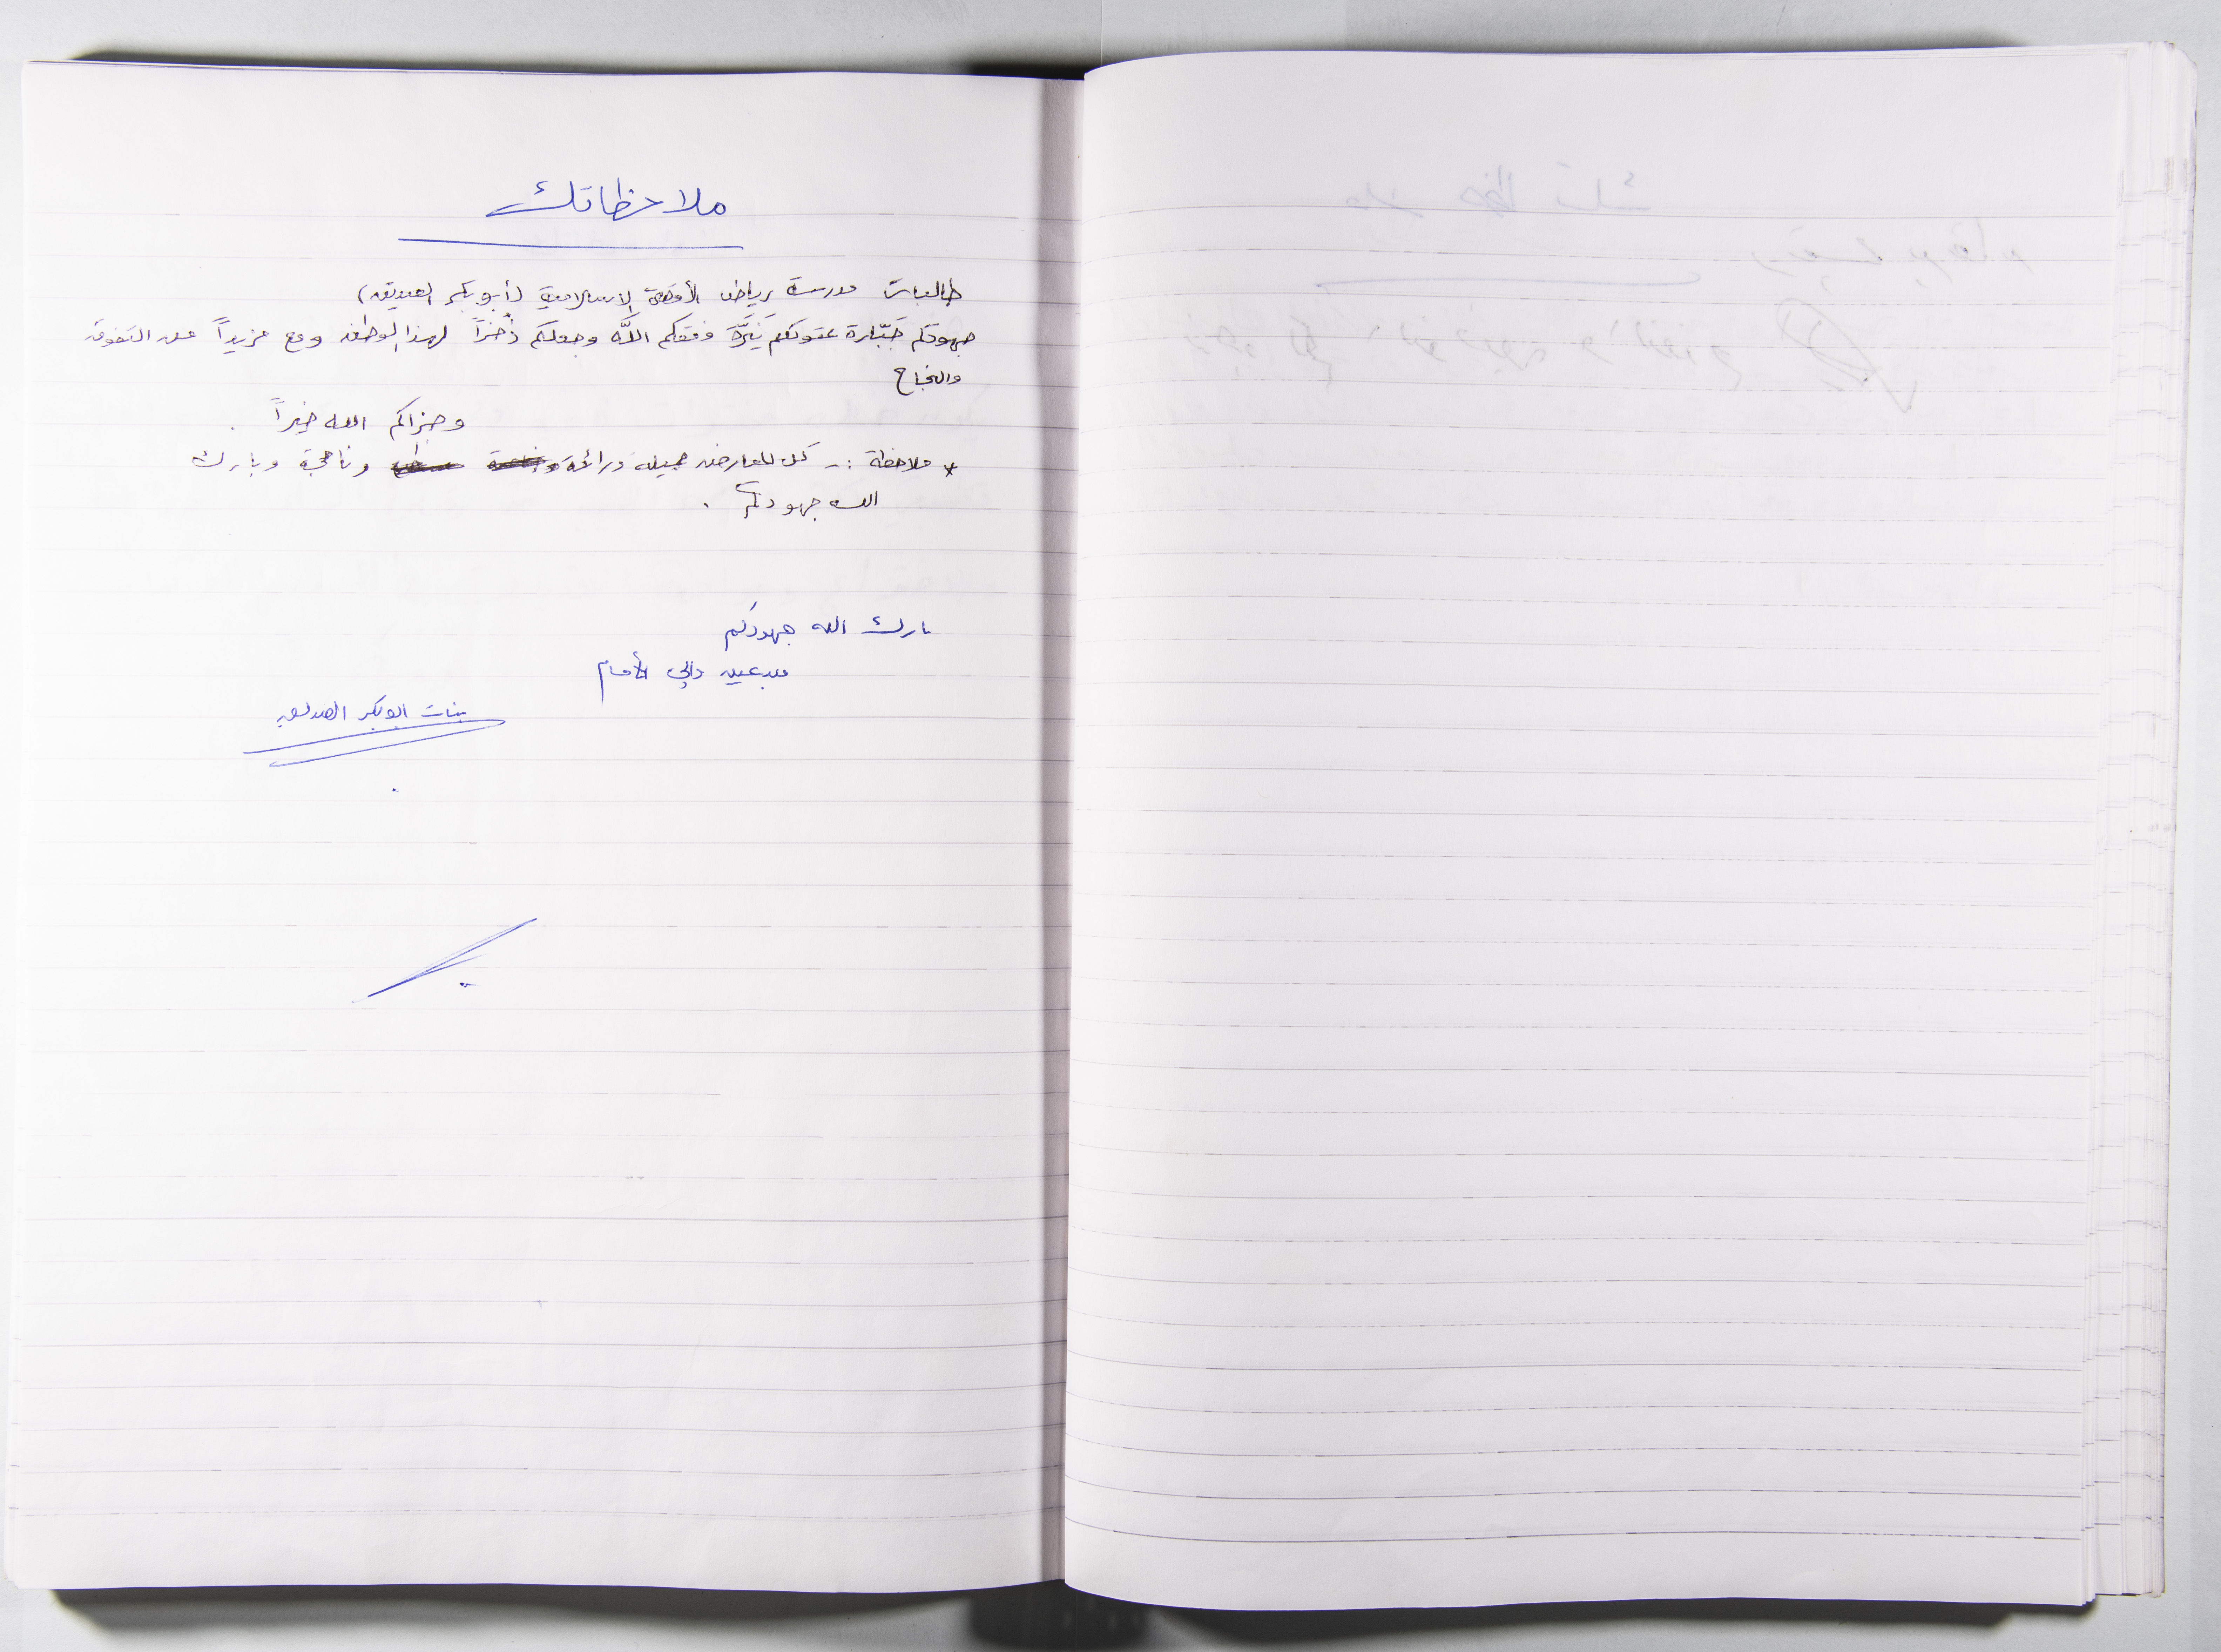 ملاحظاتك
طالبات مدرسة رياض الأقصى الإسلامية (أبو بكر الصديق)
جهودكم جَبّارة عقولكم نَيِّرَة وفقكم اللّه وجعلكم ذُخراً لهذا الوطن ومع مزيداً من التفوق
والنجاح
وجزاكم الله خيراً .
* ملاحظة :- كل المعارض جميلة ورائعة وناجحة وبارك
الله جهودكم .
بارك الله جهودكم
مبدعين وإلى الأمام
بنات ابوبكر الصديق